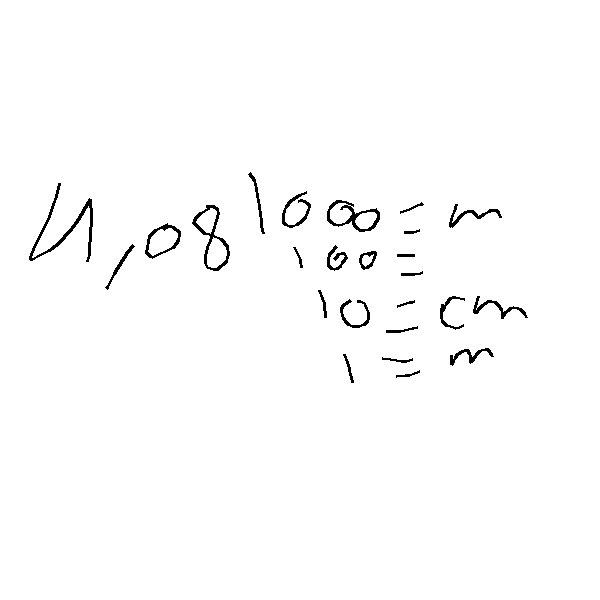 4,08 1000 = m
100 =
10 = cm
1 = m